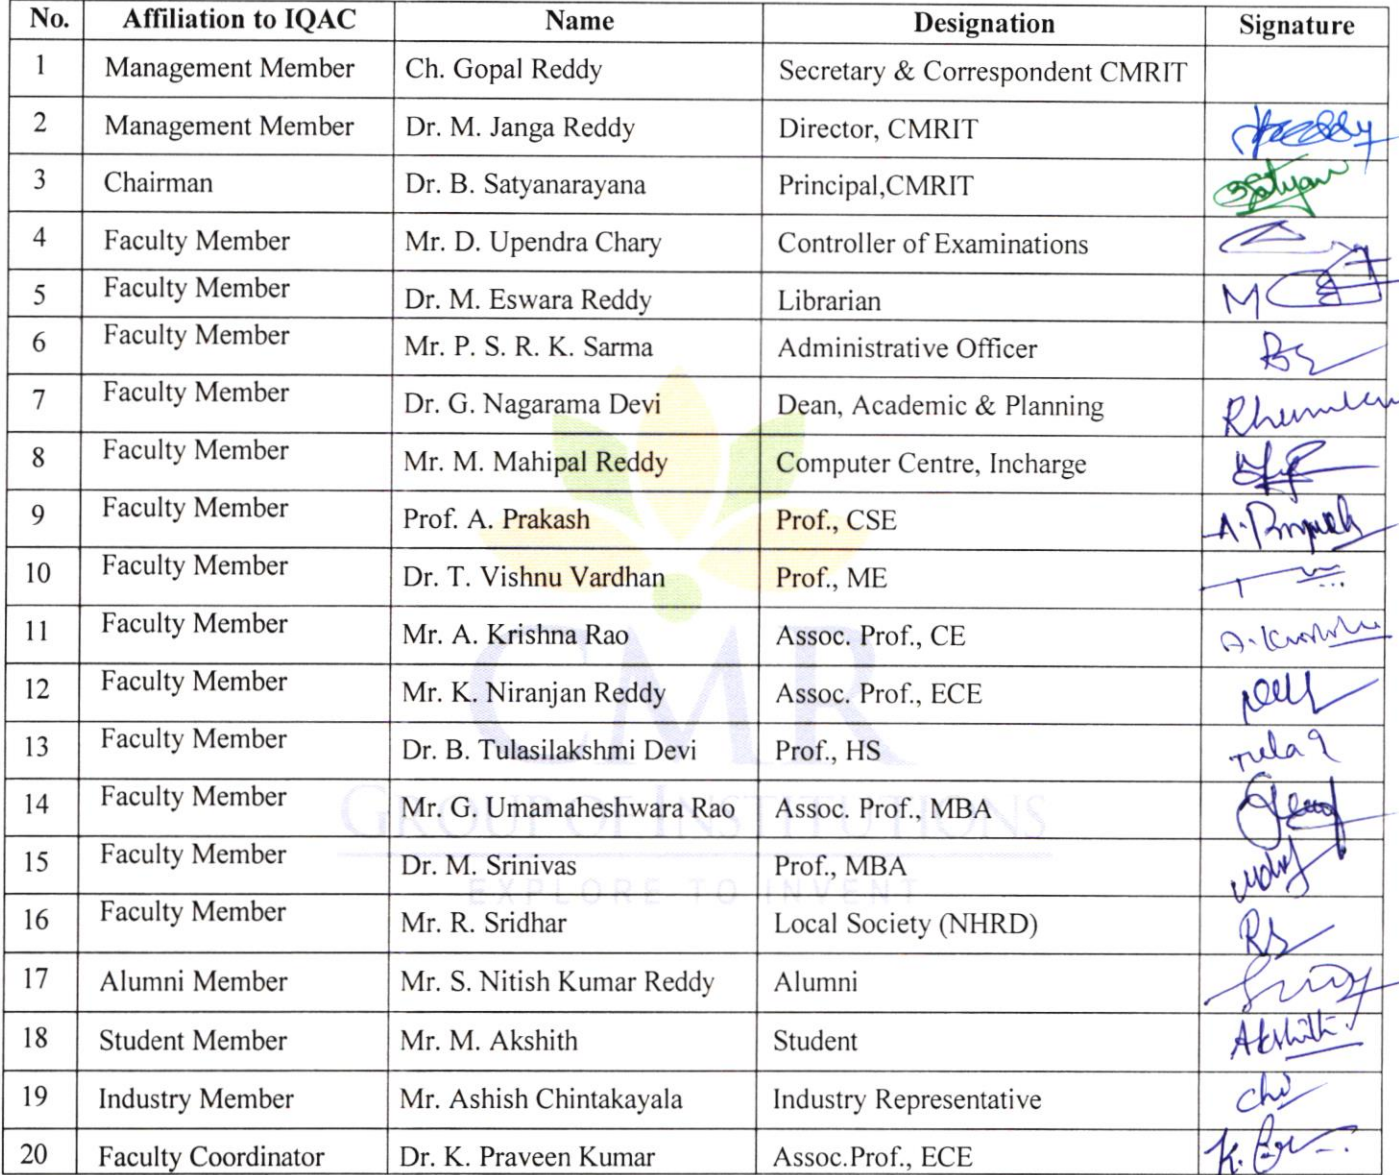 No. Affiliation to IQAC Name Designation Signature
1 Management Member Ch. Gopal Reddy Secretary & Correspondent CMRIT
2 Management Member Dr. M. Janga Reddy Director, CMRIT
3 Chairman Dr. B. Satyanarayana Principal,CMRIT
4 Faculty Member Mr. D. Upendra Chary Controller of Examinations
5 Faculty Member Dr. M. Eswara Reddy Librarian
6 Faculty Member Mr. P. S. R. K. Sarma Administrative Officer
7 Faculty Member Dr. G. Nagarama Devi Dean, Academic & Planning
8 Faculty Member Mr. M. Mahipal Reddy Computer Centre, Incharge
9 Faculty Member Prof. A. Prakash Prof., CSE
10 Faculty Member Dr. T. Vishnu Vardhan Prof., ME
11 Faculty Member Mr. A. Krishna Rao Assoc. Prof., CE
12 Faculty Member Mr. K. Niranjan Reddy Assoc. Prof., ECE
13 Faculty Member Dr. B. Tulasilakshmi Devi Prof., HS
14 Faculty Member Mr. G. Umamaheshwara Rao Assoc. Prof., MBA
15 Faculty Member Dr. M. Srinivas Prof., MBA
16 Faculty Member Mr. R. Sridhar Local Society (NHRD)
17 Alumni Member Mr. S. Nitish Kumar Reddy Alumni
18 Student Member Mr. M. Akshith Student Akshith
19 Industry Member Mr. Ashish Chintakayala Industry Representative
20 Faculty Coordinator Dr. K. Praveen Kumar Assoc.Prof., ECE
CMR
GROUP OF INSTITUTIONS
EXPLORE TO INVENT